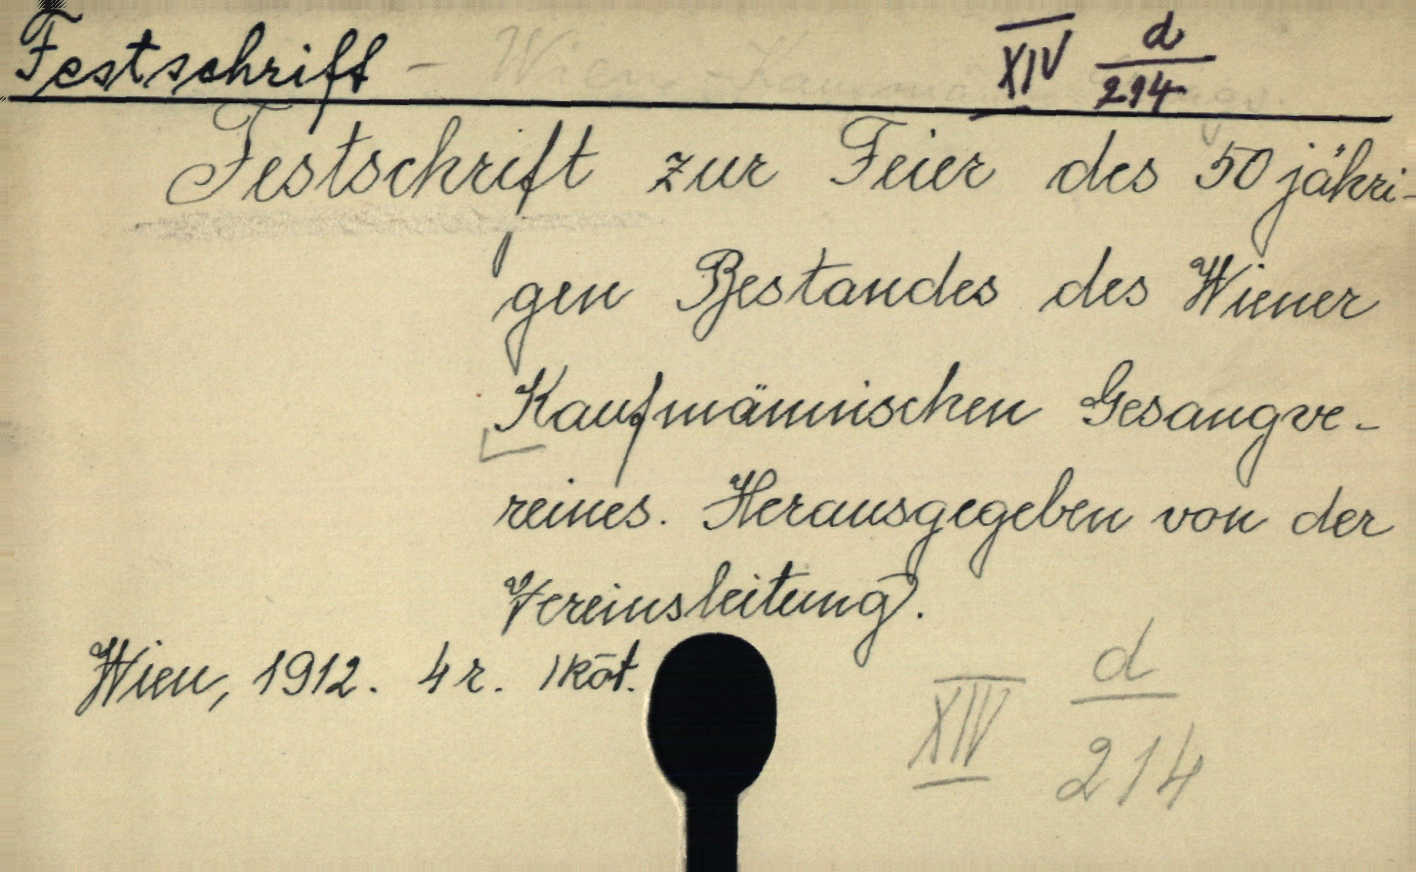 Festschrift - Wien - XIV d/214
Festschrift zur Feier des 50 jähri-
gen Bestandes des Wiener
Kaufmännischen Gesangve-
reines. Herausgegeben von der
Vereinsleitung.
Wien, 1912. 4 r. 1 köt.
XIV d/214